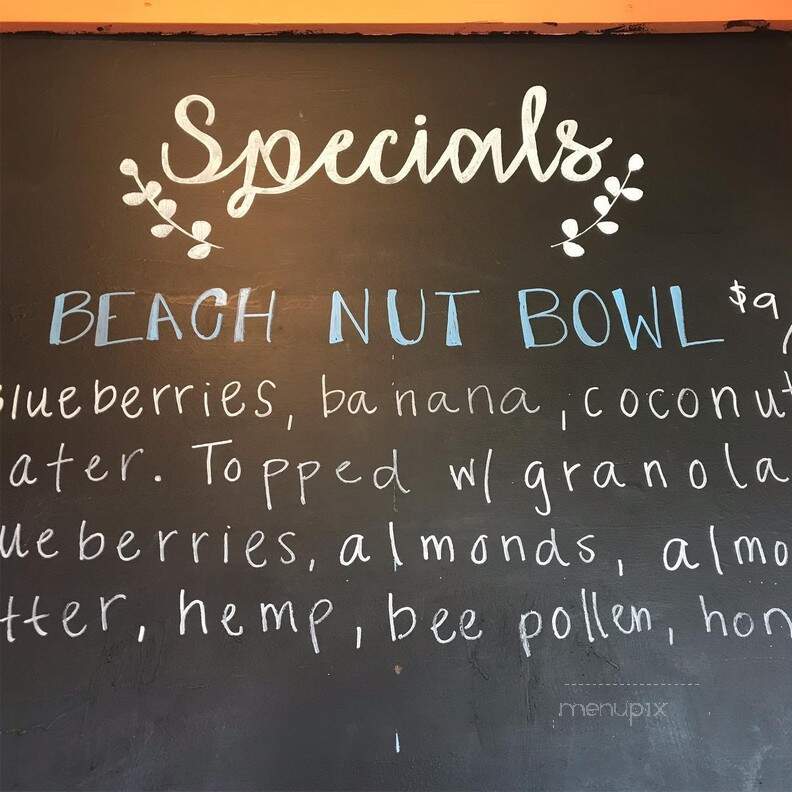 Specials
BEACH NUT BOWL $9
Blueberries, banana, coconut
ater. Topped w/ granola
ueberries, almonds, almo
tter, hemp, bee pollen, hon
menupix